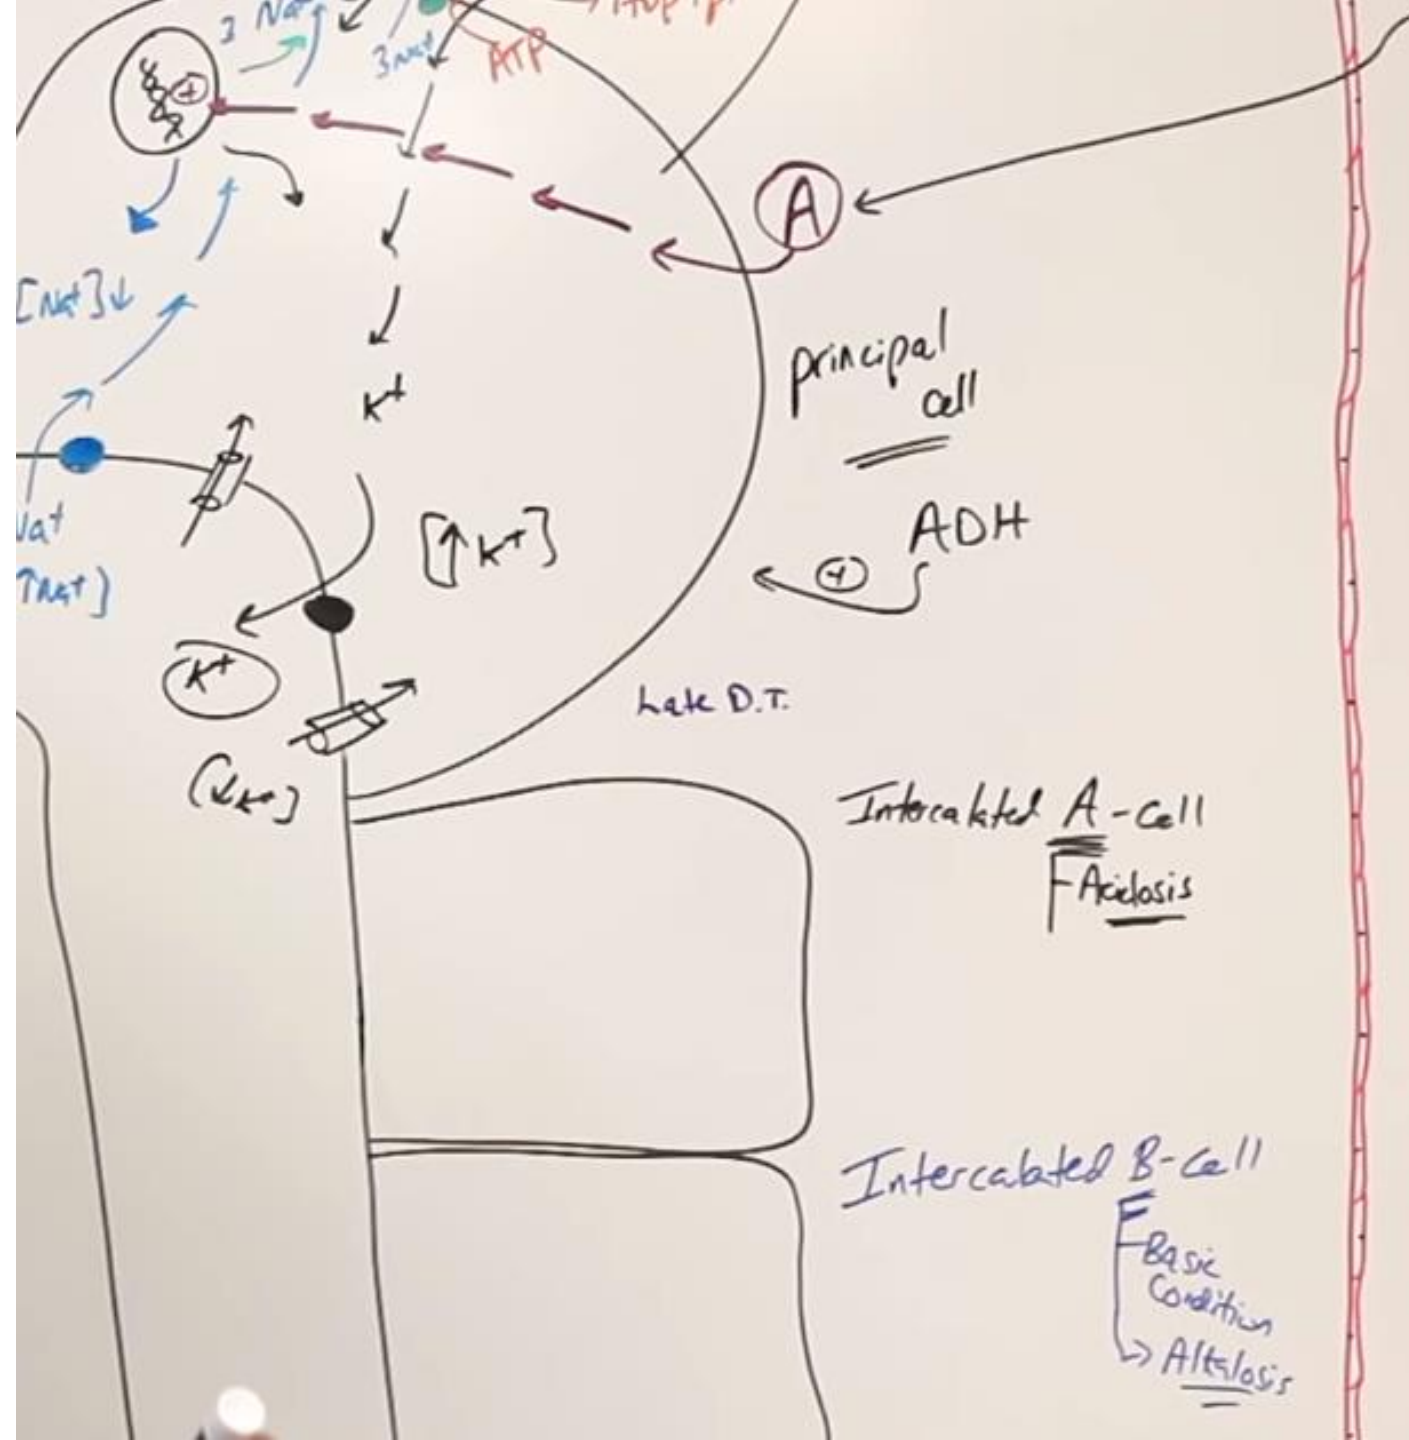 3 Na+
3Na+
ATP
+
A
[Na+]↓
principal
cell
K+
ADH
+
[↑K+]
K+
Late D.T.
[↓K+]
Intercalated A-Cell
Acidosis
Intercalated B-Cell
Basic
Condition
→ Alkalosis